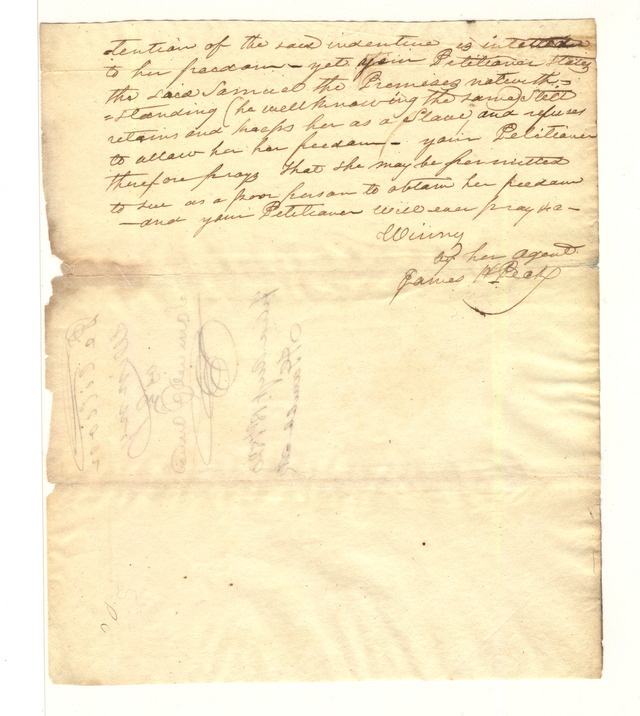 tention of the said indenture is intitled
to her freedom — yet your Petitioner states
the said Samuel the Premises notwith=
=standing (he well knowing the same) Still
retains and keeps her as a Slave and refuses
to allow her her freedom — your Petitioner
therefore prays that she may be permitted
to sue as a poor person to obtain her freedom
— and your Petitioner will ever pray &c —
Winny
by her agent
James H Peck